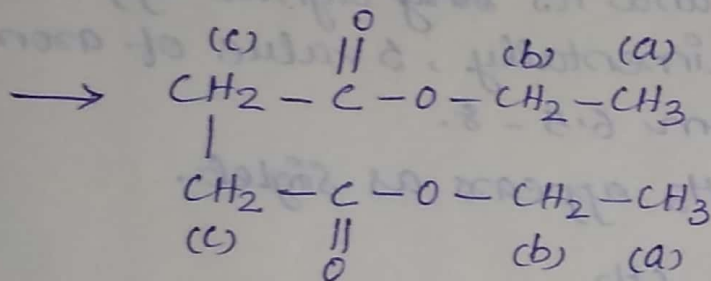 (c) O (b) (a)
→ CH2 – C – O – CH2 – CH3
CH2 – C – O – CH2 – CH3
(c) O (b) (a)